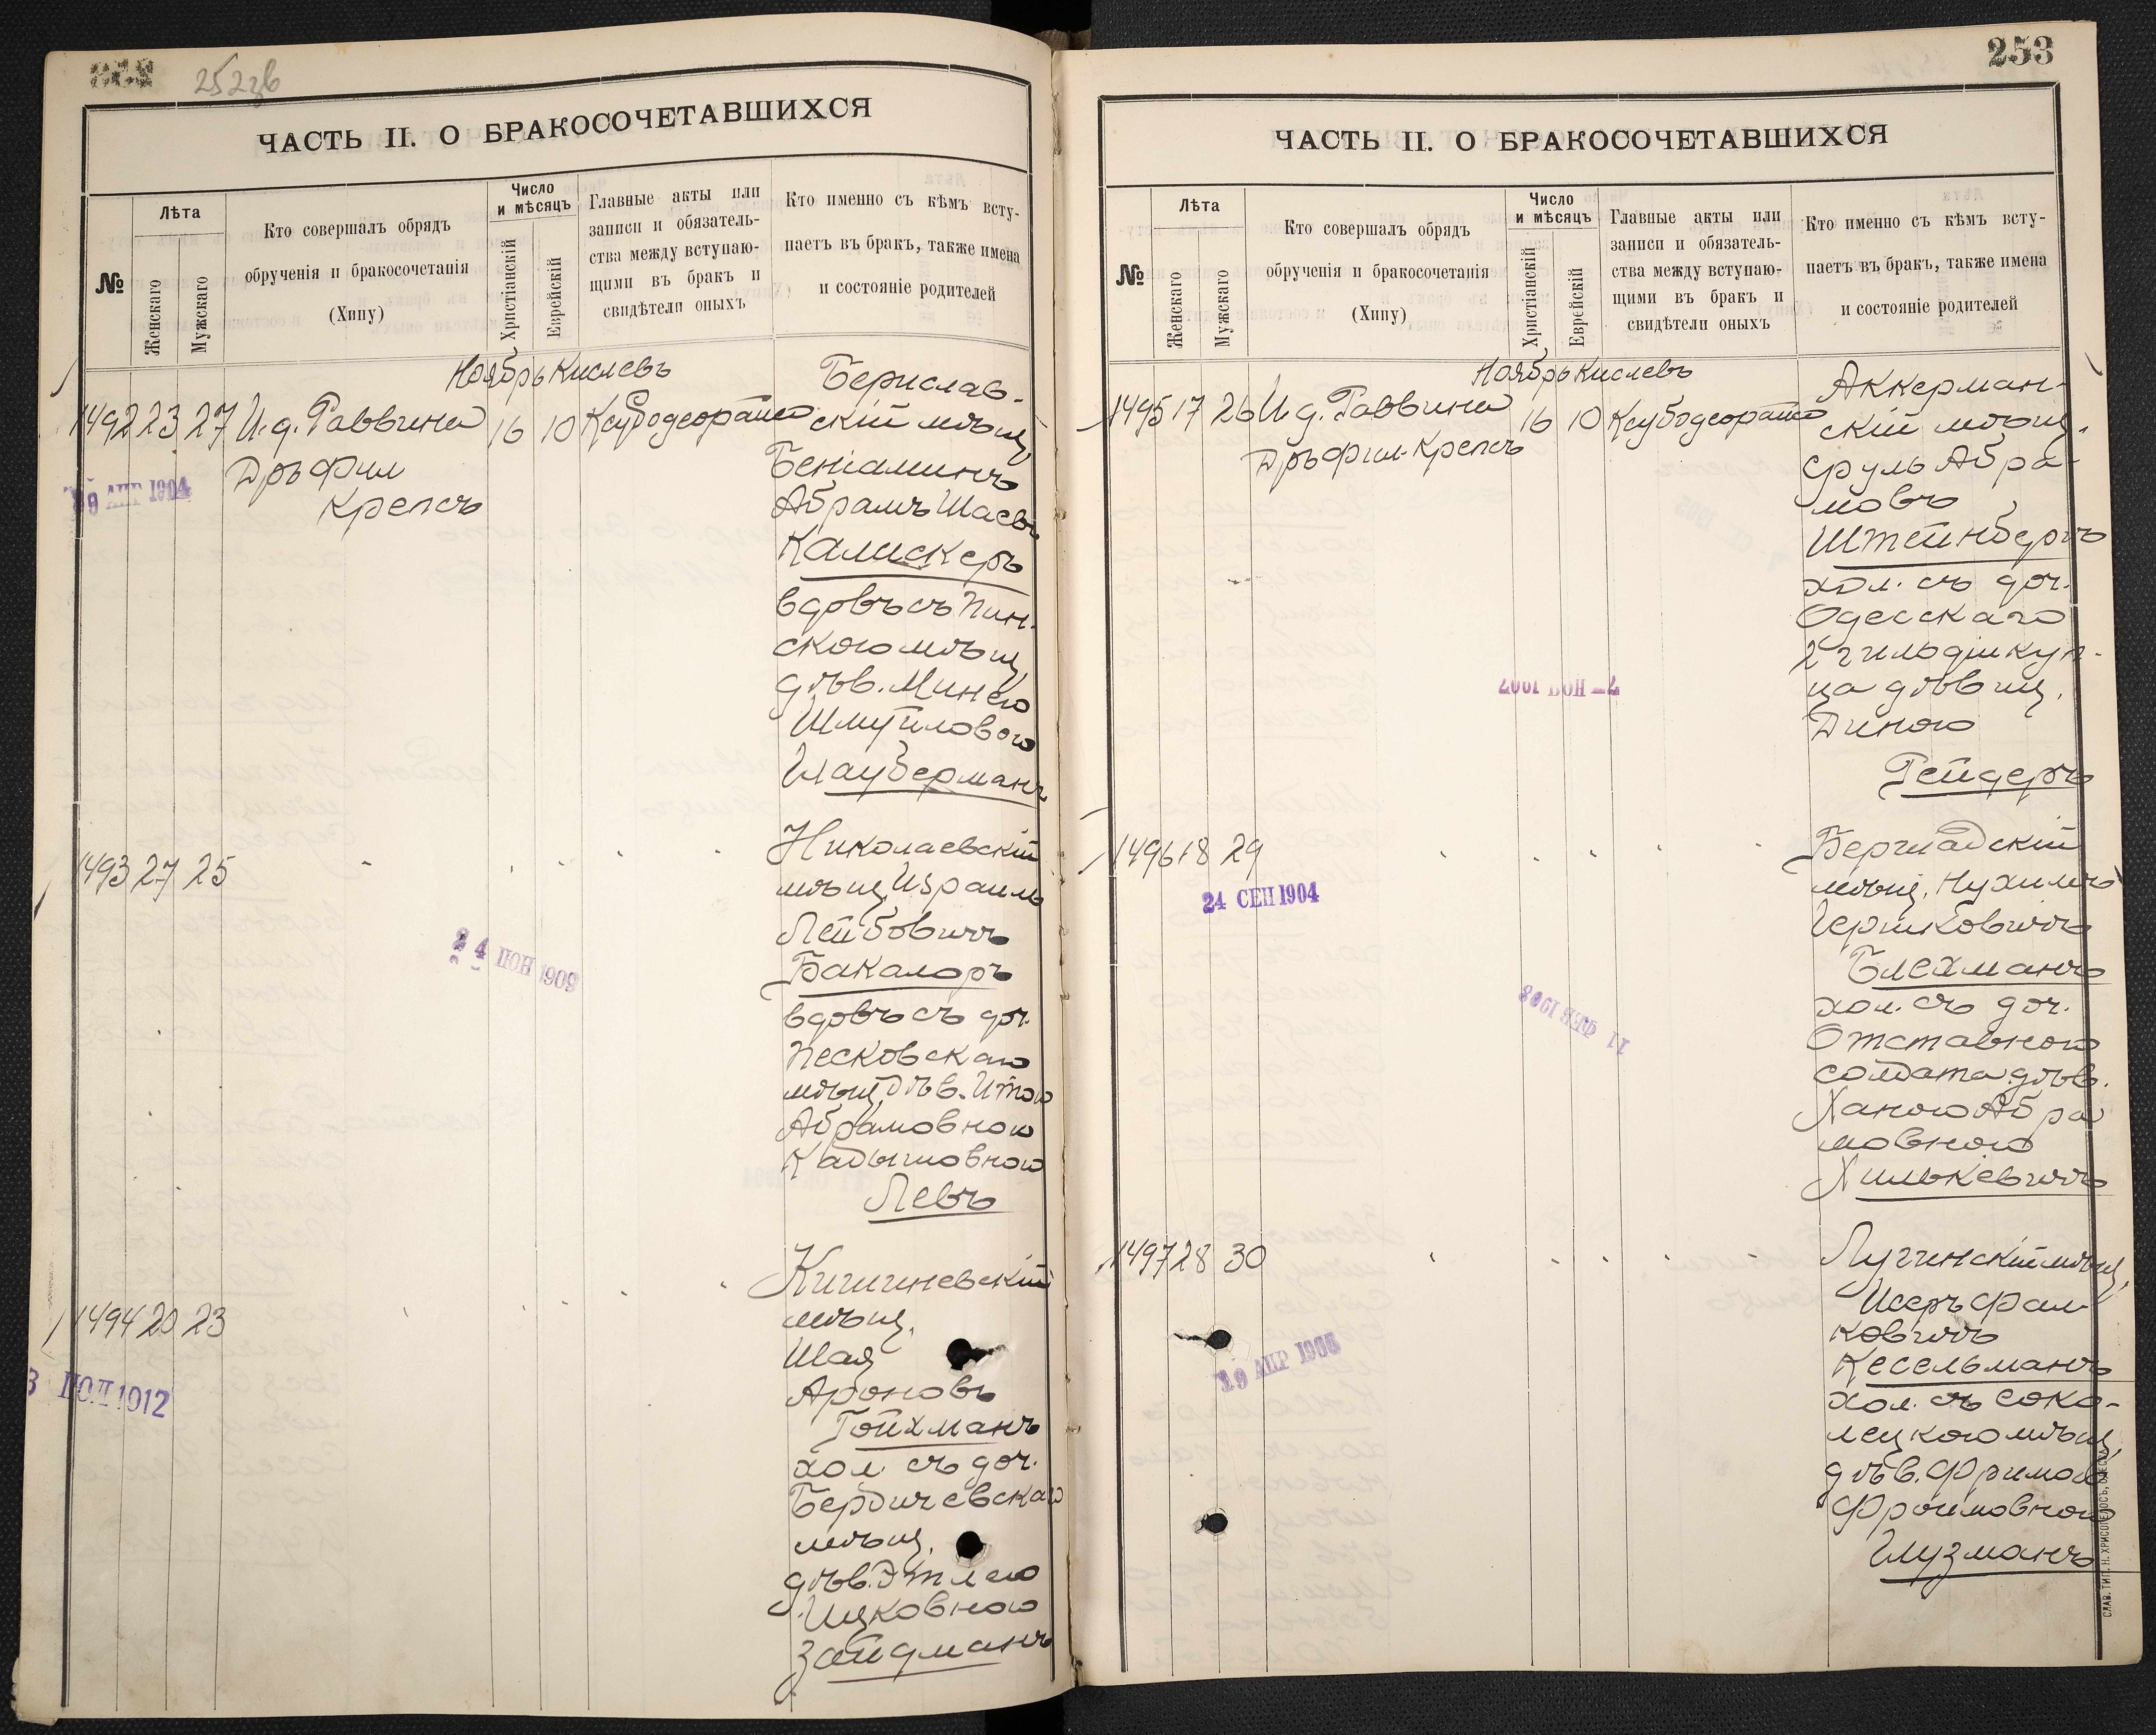 252об
ЧАСТЬ II. О БРАКОСОЧЕТАВШИХСЯ
№
Лѣта
Женскаго
Мужскаго
Кто совершалъ обрядъ
обрученія и бракосочетанія
(Хипу)
Число
и мѣсяцъ
Христіанскій
Еврейскій
Главные акты или
записи и обязатель-
ства между вступаю-
щими въ бракъ и
свидѣтели оныхъ
Кто именно съ кѣмъ всту-
паетъ въ бракъ, также имена
и состояніе родителей
Ноябрь Кислевъ
1492 23 27 И. д. Раввина 16 10
Дръ Фил
Крепсъ
19 АПР 1904
Берислав-
скій мѣщ.
Беніаминъ
Абрамъ Шаевъ
Калискеръ
вдовъ съ Пин-
скою мѣщ.
дѣв. Минею
Шмуйловою
Глауберманъ
1493 27 25
24 ІЮН 1909
Николаевскій
мѣщ. Израиль
Лейбовичъ
Бакаляръ
вдовъ съ доч.
Песковскаго
мѣщ. дѣв. Итою
Абрамовною
Кадышовною
Левъ
1494 20 23
3 ІЮЛ 1912
Кишиневскій
мѣщ.
Шая
Ароновъ
Гойхманъ
хол. съ доч.
Бердичевскаго
мѣщ.
дѣв. Этлею
Ицковною
Зайдманъ
253
ЧАСТЬ II. О БРАКОСОЧЕТАВШИХСЯ
№
Лѣта
Женскаго
Мужскаго
Кто совершалъ обрядъ
обрученія и бракосочетанія
(Хипу)
Число
и мѣсяцъ
Христіанскій
Еврейскій
Главные акты или
записи и обязатель-
ства между вступаю-
щими въ бракъ и
свидѣтели оныхъ
Кто именно съ кѣмъ всту-
паетъ въ бракъ, также имена
и состояніе родителей
Ноябрь Кислевъ
1495 17 26 И. д. Раввина 16 10
Дръ Фил. Крепсъ
7 - НОЯ 1907
Аккерман-
скій мѣщ.
Сруль Абра-
мовъ
Штейнбергъ
хол. съ доч.
Одесскаго
2 гильдіи куп-
ца дѣвиц.
Диною
Рейдеръ
1496 18 29
24 СЕН 1904
11 ФЕВ 1908
Бершадскій
мѣщ. Нухимъ
Гершковичъ
Блехманъ
хол. съ доч.
Отставного
солдата дѣв.
Ханою Абра
мовною
Хилькевичъ
1497 28 30
Лугинскій мѣщ.
Исеръ Фал-
ковичъ
Кесельманъ
хол. съ Соко-
лецкою мѣщ.
дѣв. Фримою
Фроимовною
Глузманъ
СЛАВ. ТИП. Н. ХРИСОГЕЛОСЪ, ОДЕССА